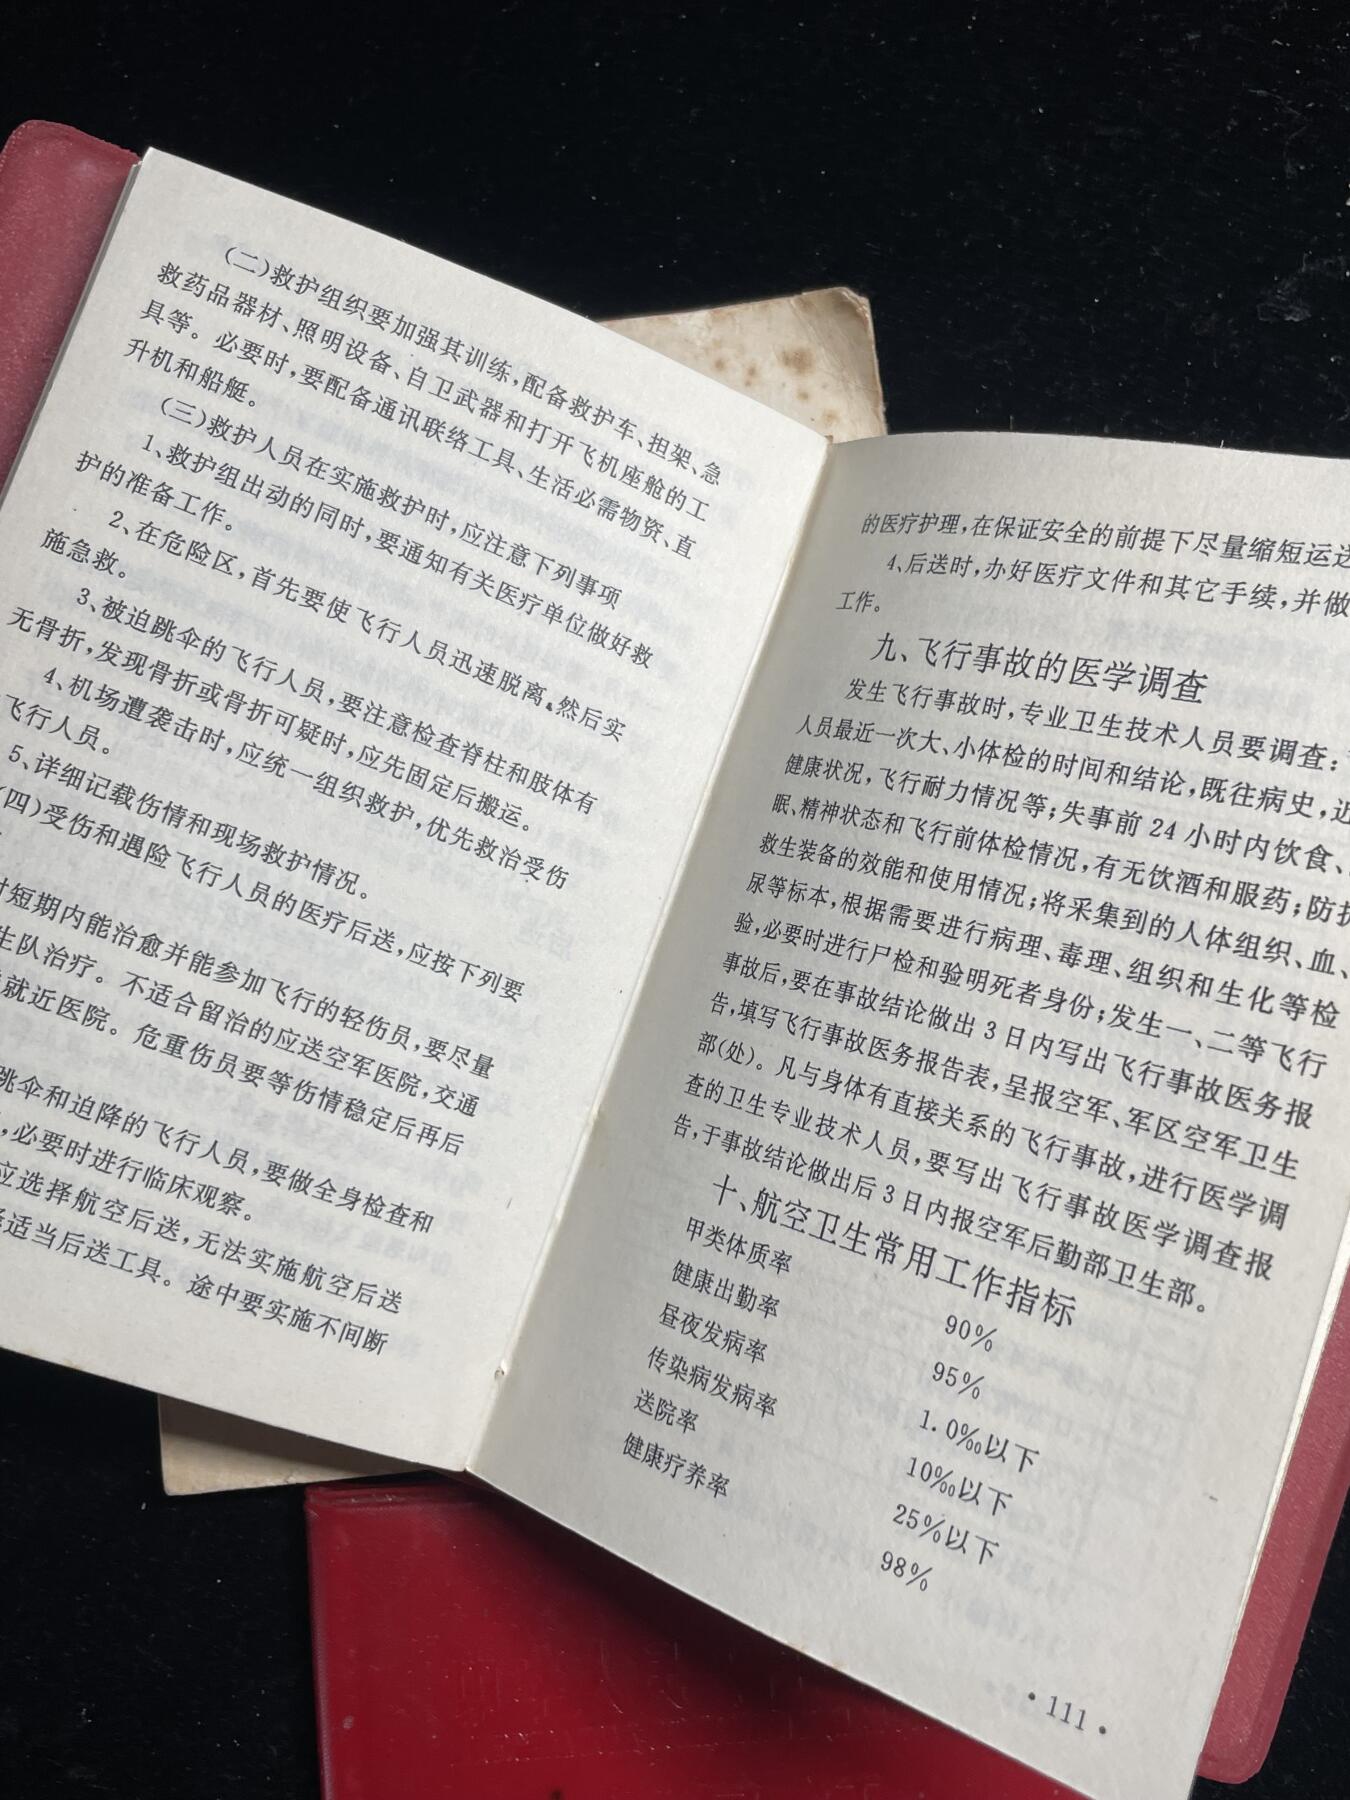 (二)救护组织要加强其训练,配备救护车、担架、急
救药品器材、照明设备、自卫武器和打开飞机座舱的工
具等。必要时,要配备通讯联络工具、生活必需物资、直
升机和船艇。
(三)救护人员在实施救护时,应注意下列事项
1、救护组出动的同时,要通知有关医疗单位做好救
护的准备工作。
2、在危险区,首先要使飞行人员迅速脱离,然后实
施急救。
3、被迫跳伞的飞行人员,要注意检查脊柱和肢体有
无骨折,发现骨折或骨折可疑时,应先固定后搬运。
4、机场遭袭击时,应统一组织救护,优先救治受伤
飞行人员。
5、详细记载伤情和现场救护情况。
(四)受伤和遇险飞行人员的医疗后送,应按下列要
短期内能治愈并能参加飞行的轻伤员,要尽量
生队治疗。不适合留治的应送空军医院,交通
就近医院。危重伤员要等伤情稳定后再后
跳伞和迫降的飞行人员,要做全身检查和
,必要时进行临床观察。
应选择航空后送,无法实施航空后送
适当后送工具。途中要实施不间断
的医疗护理,在保证安全的前提下尽量缩短运送
4、后送时,办好医疗文件和其它手续,并做
工作。
九、飞行事故的医学调查
发生飞行事故时,专业卫生技术人员要调查:
人员最近一次大、小体检的时间和结论,既往病史,近
健康状况,飞行耐力情况等;失事前24小时内饮食、
眠、精神状态和飞行前体检情况,有无饮酒和服药;防护
救生装备的效能和使用情况;将采集到的人体组织、血、
尿等标本,根据需要进行病理、毒理、组织和生化等检
验,必要时进行尸检和验明死者身份;发生一、二等飞行
事故后,要在事故结论做出3日内写出飞行事故医务报
告,填写飞行事故医务报告表,呈报空军、军区空军卫生
部(处)。凡与身体有直接关系的飞行事故,进行医学调
查的卫生专业技术人员,要写出飞行事故医学调查报
告,于事故结论做出后3日内报空军后勤部卫生部。
十、航空卫生常用工作指标
甲类体质率 90%
健康出勤率 95%
昼夜发病率 1.0‰以下
传染病发病率 10‰以下
送院率 25%以下
健康疗养率 98%
·111·